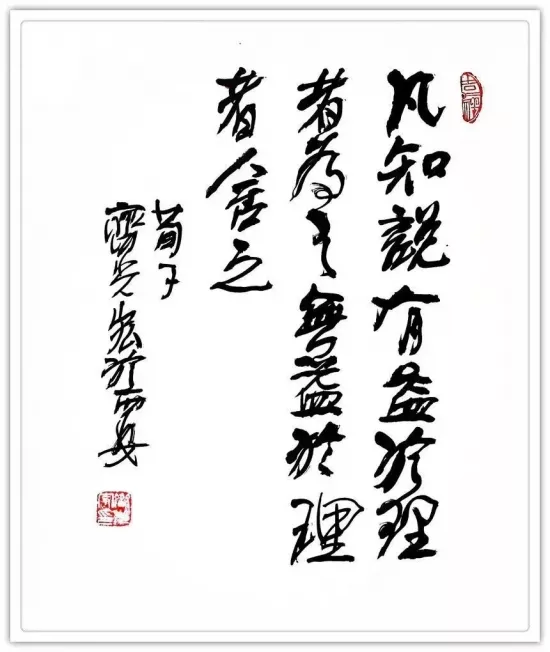 吉祥
凡知說有益於理
者為之無益於理
者舍之
荀子
於西安